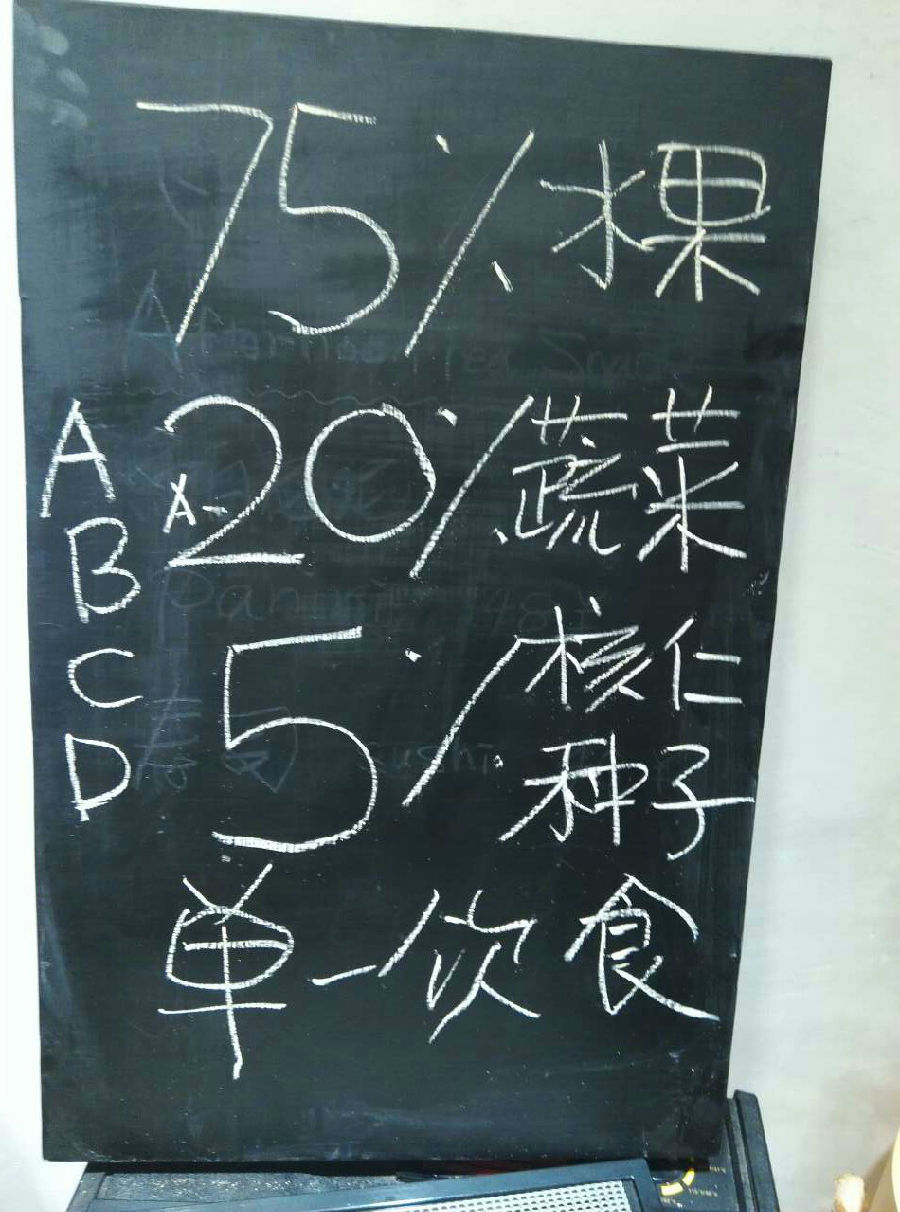 75% 水果
A
20% 蔬菜
A-
B
5% 核仁
C
种子
D
单一饮食